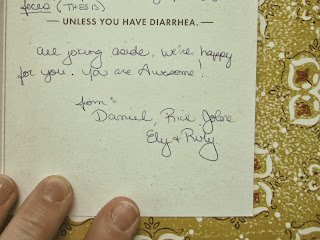 feces (THESIS)
— UNLESS YOU HAVE DIARRHEA. —
All joking aside, we're happy
for you. You are Awesome!
from:
Daniel, Rick Jolene
Ely & Ruly